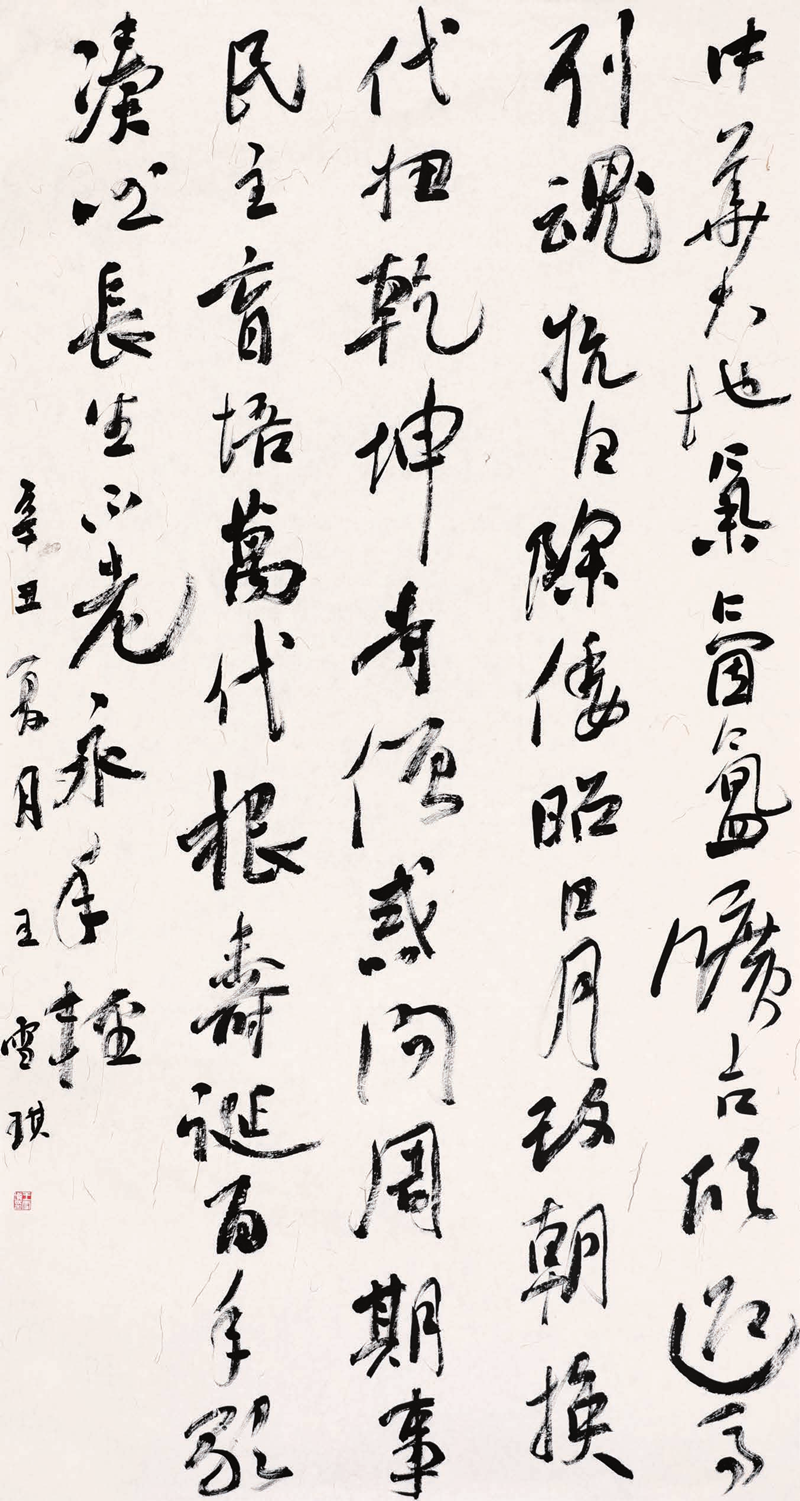 中華大地氣氤氳曠古欣迎馬
列魂抗日除倭昭日月改朝換
代扭乾坤惑問周期事
民主育培萬代根壽誕百年歌
長生不老永年輕
辛丑夏月王雪琪